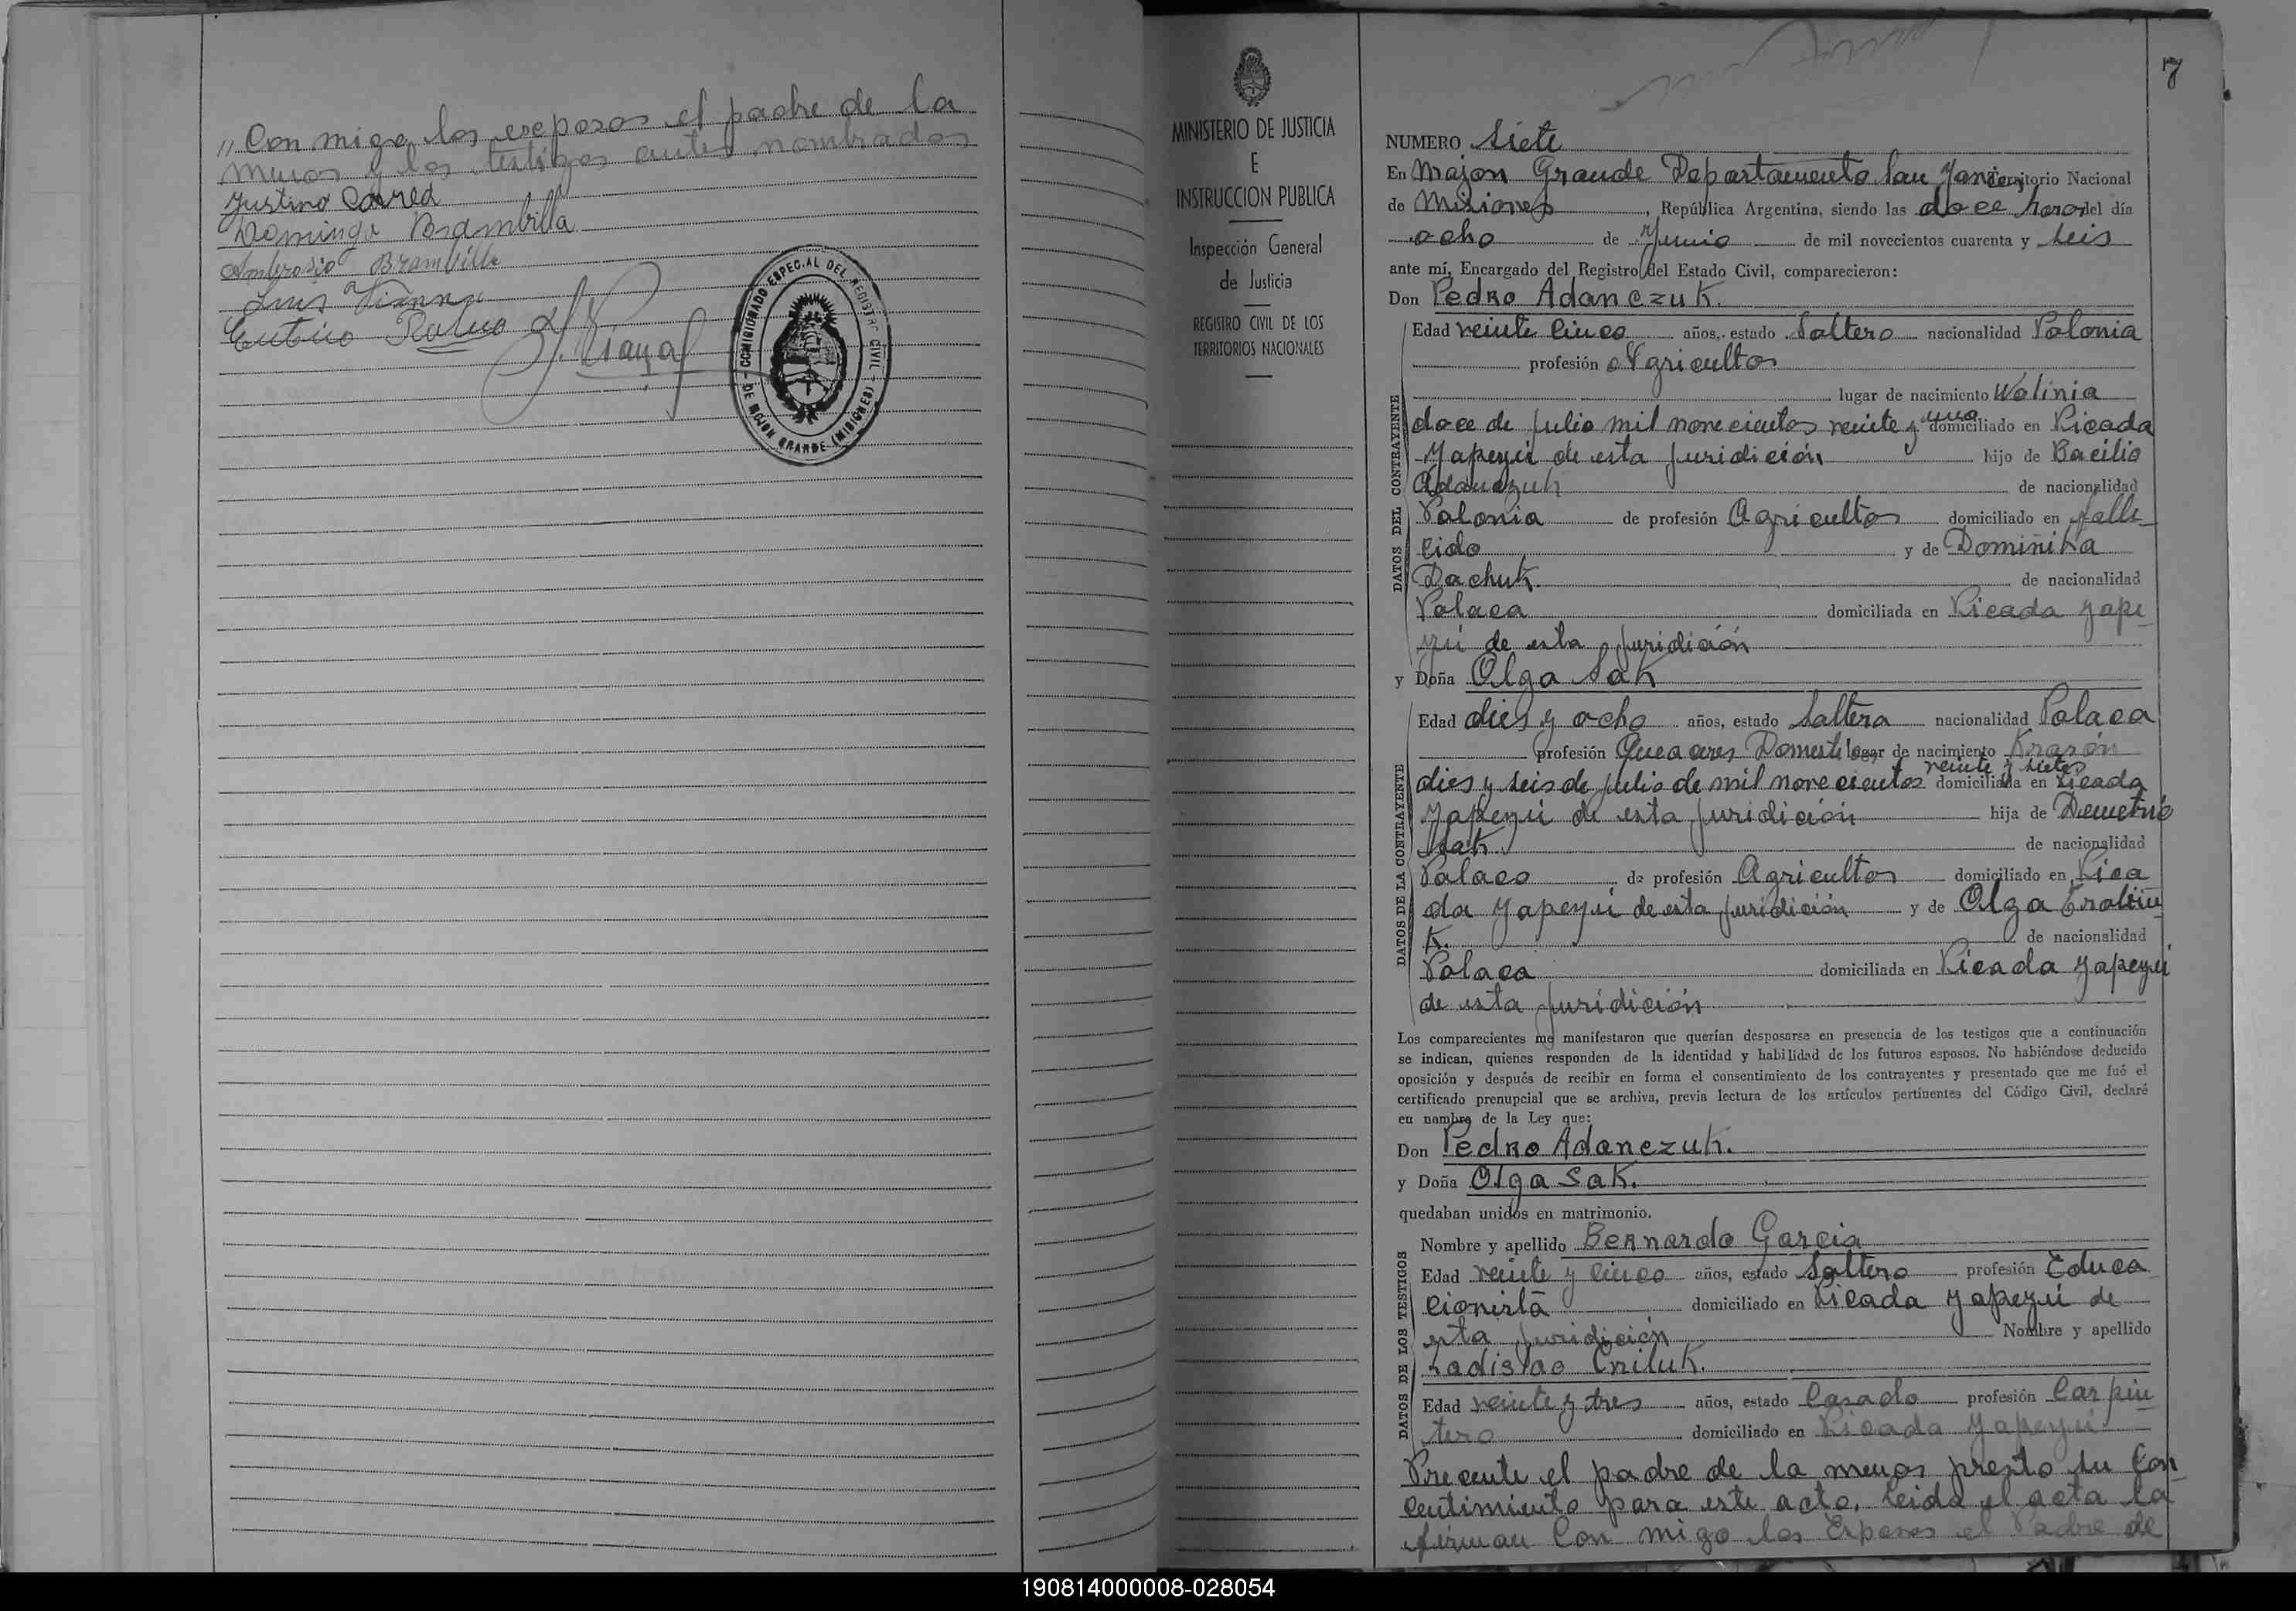 " Con migo los esposos el padre de la
menor y los testigos antes nombrados
Justino Correa
Domingo Brambilla
Ambrosio Brambilla
Luis Vianna
COMICIONADO ESPECIAL DEL REGISTRO CIVIL - DE MOJON GRANDE (MISIONES) -
MINISTERIO DE JUSTICIA
E
INSTRUCCION PUBLICA
Inspección General
de Justicia
REGISTRO CIVIL DE LOS
TERRITORIOS NACIONALES
7
NUMERO Siete
En Mojon Grande Departamento San Javier Territorio Nacional
de Misiones, República Argentina, siendo las doce horas del día
ocho de Junio de mil novecientos cuarenta y seis
ante mí, Encargado del Registro del Estado Civil, comparecieron:
Don Pedro Adanczuk.
DATOS DEL CONTRAYENTE
Edad veinte cinco años, estado Soltero nacionalidad Polonia
profesión Agricultor
lugar de nacimiento Wolinia
doce de julio mil novecientos veinte y uno domiciliado en Picada
Yapeyú de esta juridición hijo de Bacilio
Adanczuk de nacionalidad
Polonia de profesión Agricultor domiciliado en falle
cido y de Dominika
Dachuk. de nacionalidad
Polaca domiciliada en Picada Yape
yú de esta juridición
y Doña Olga Sak
DATOS DE LA CONTRAYENTE
Edad dies y ocho años, estado Soltera nacionalidad Polaca
profesión Queaceres Domesti lugar de nacimiento
dies y seis de julio de mil novecientos veinte y siete domiciliada en Picada
Yapeyú de esta juridición hija de Demetrio
Sak. de nacionalidad
Polaco de profesión Agricultor domiciliado en Pica
da Yapeyú de esta juridición y de Olga
K. de nacionalidad
Polaca domiciliada en Picada Yapeyú
de esta juridición
Los comparecientes me manifestaron que querían desposarse en presencia de los testigos que a continuación
se indican, quienes responden de la identidad y habilidad de los futuros esposos. No habiéndose deducido
oposición y después de recibir en forma el consentimiento de los contrayentes y presentado que me fué el
certificado prenupcial que se archiva, previa lectura de los artículos pertinentes del Código Civil, declaré
en nombre de la Ley que:
Don Pedro Adanczuk.
y Doña Olga Sak.
quedaban unidos en matrimonio.
DATOS DE LOS TESTIGOS
Nombre y apellido Bernardo Garcia
Edad veinte y cinco años, estado Soltero profesión Educa
cionista domiciliado en Picada Yapeyú de
esta juridición Nombre y apellido
Ladislao
Edad veinte y tres años, estado Casado profesión Carpin
tero domiciliado en Picada Yapeyú
Precente el padre de la menor presto su con
centimiento para este acto. Leida el acta la
firman Con migo los Esposos el Padre de
190814000008-028054